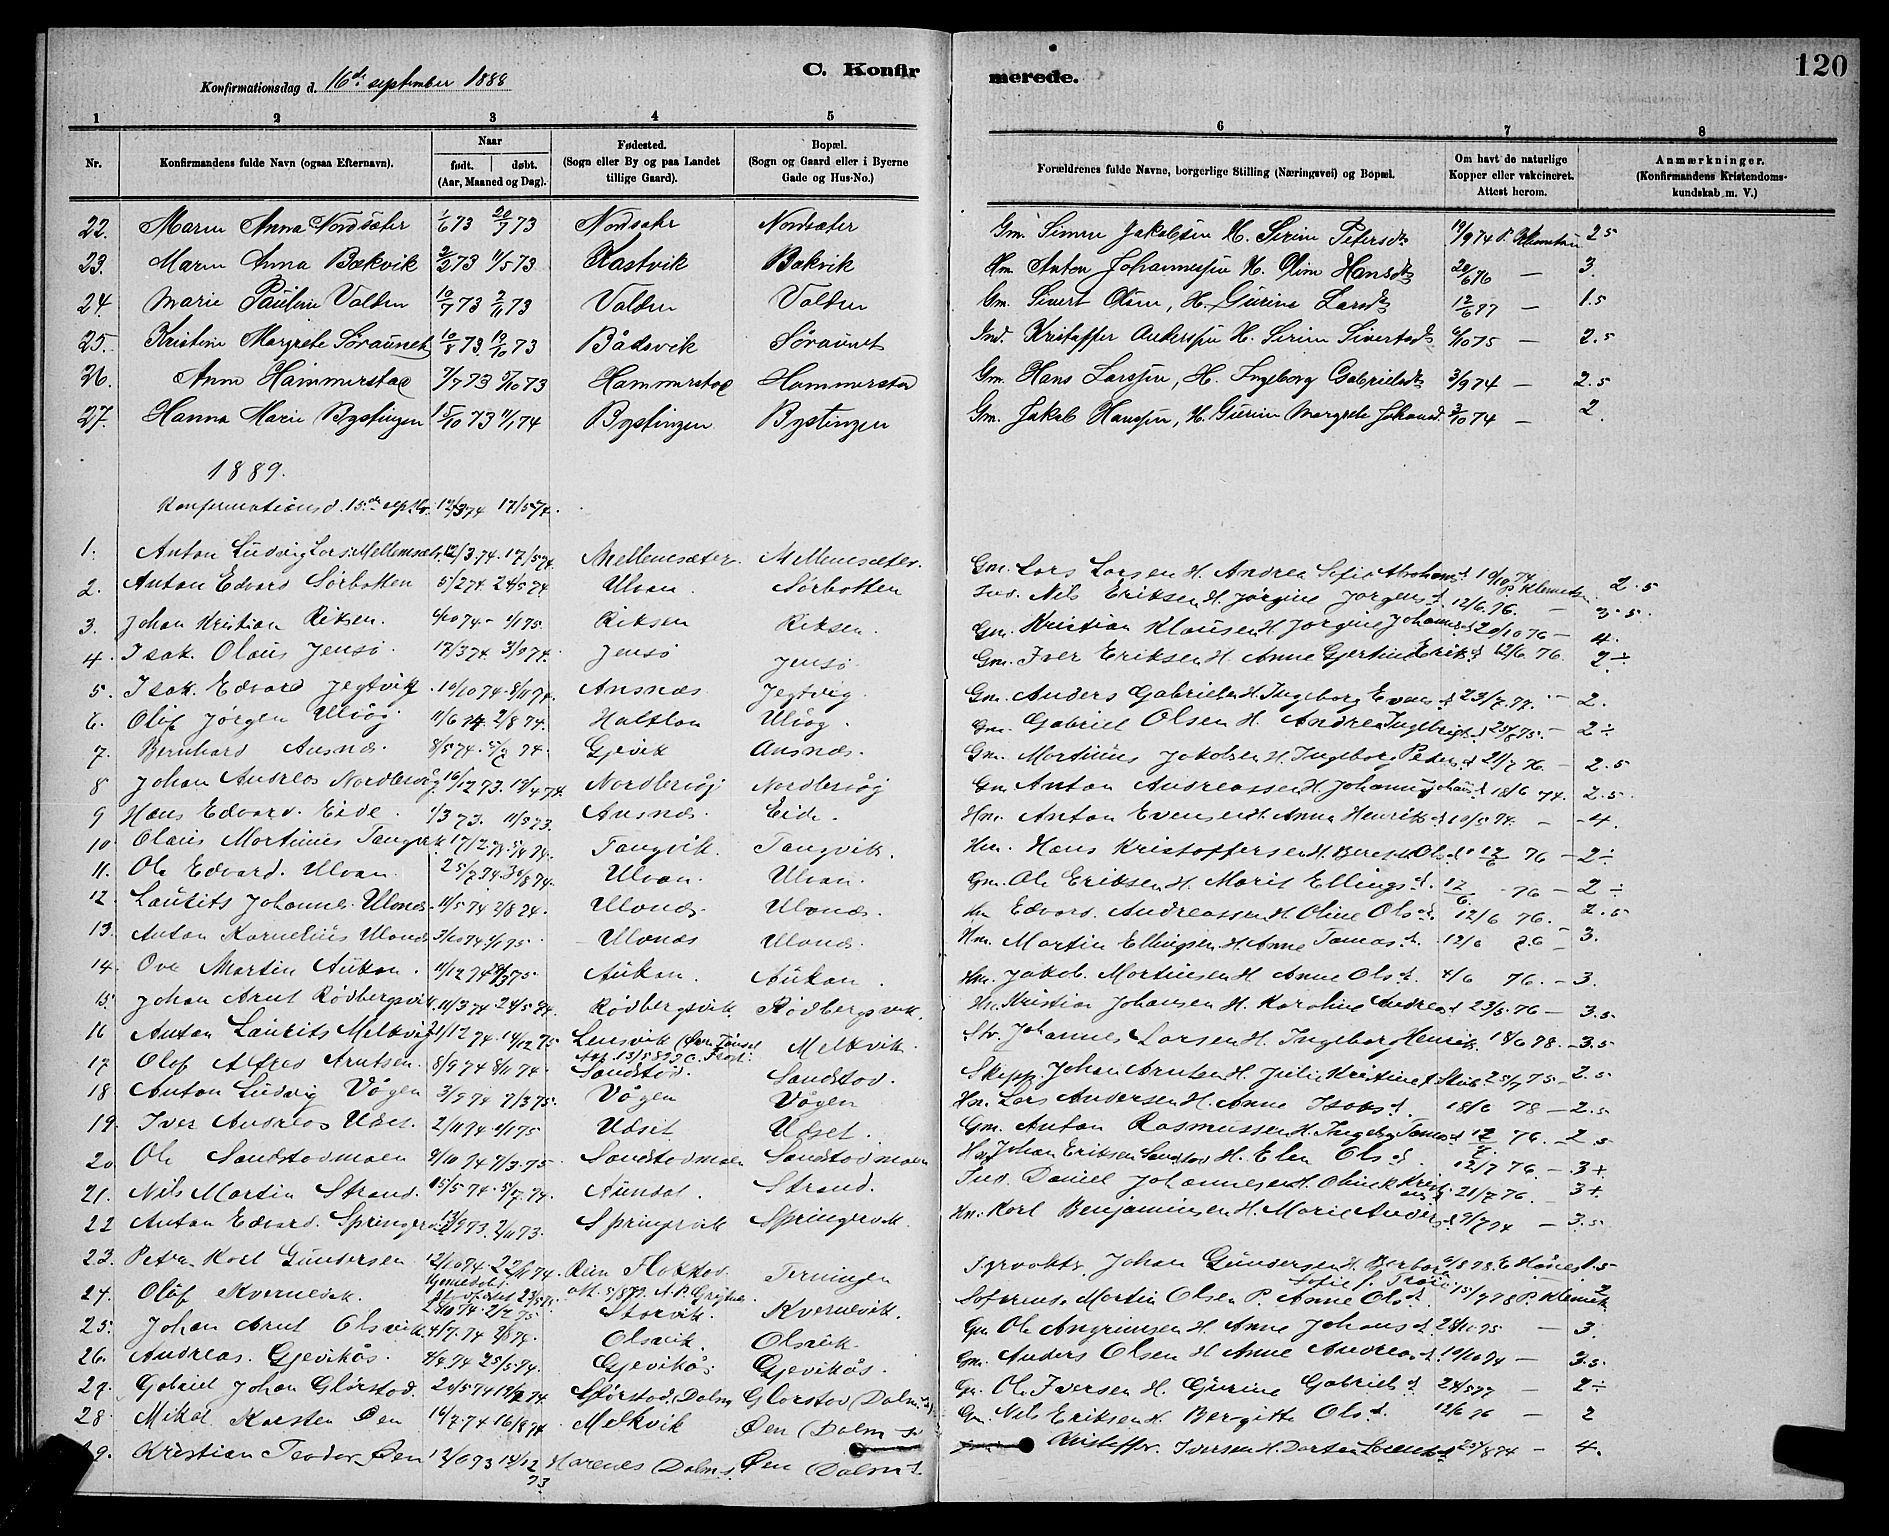 C. Konfir
merede.
120
Konfirmationsdag d. 16de september 1888
1 2 3 4 5 6 7 8
Nr.
Konfirmandens fulde Navn (ogsaa Efternavn).
Naar
født. døbt.
(Aar, Maaned og Dag).
Fødested.
(Sogn eller By og paa Landet
tillige Gaard).
Bopæl.
(Sogn og Gaard eller i Byerne
Gade og Hus-No.)
Forældrenes fulde Navne, borgerlige Stilling (Næringsvei) og Bopæl.
Om havt de naturlige
Kopper eller vakcineret.
Attest herom.
Anmærkninger.
(Konfirmandens Kristendoms-
kundskab m. V.)
22. Maren Anna Nordsæter 1/6 73 20/7 73 Nordsæter Nordsæter Gm. Simen Jakobsen H. Sirine Petersdt 19/9 74 2.5
23. Maren Anna Bækvik 73 11/5 73 Kastvik Bækvik Anton Johannessen H. Oline Hansdt 20/6 76 — 3.
24. Marie Pauline Valden 10/7 73 2/11 73 Valden Valden Gm. Sivert Olsen, H. Gurine Larsdt 12/6 77 — 1.5
25. Kristine Margrete Søraunet 10/8 73 19/10 73 Bådsvik Søraunet Ind. Kristoffer Andersen H. Sirine Sivertsdt 6/10 75 — 2.5
26. Anne Hammerstad 7/7 73 5/10 73 Hammerstad Hammerstad Gm. Hans Larssen, H. Ingeborg Gabrielsdt 3/9 74 — 2.5
27. Hanna Marie Bystingen 15/10 73 11/1 74 Bystingen Bystingen Gm. Jakob Hanssen, H. Gurine Margrete Johansd. 3/10 74 — 2.
1889.
Konfirmationsd. 15de septbr. 12/3 74 17/5 74.
1. Anton Ludvig Lars. Mellemsæt. 12/3.74. 17/5 74. Mellemsæter. Mellemsæter. Gm. Lars Larsen H. Andrea Sofie Abrahamsd. 10/10 74 2.5
2. Anton Edvard Sørbotten 5/2 74. 24/5 74 Ulvan. Sørbotten Ind. Nils Eriksen H. Jørgine Jørgensd. 12/6.76. — 3.5.
3. Johan Kristian Riksen. 6/10 74 – 1/1 75. Riksen Riksen. Gm. Kristian Klausen H. Jørgine Johansd. 20/10 76 — 4.
4. Isak Olaus Jensø. 17/3 74. 3/5 74. Jensø Jensø. Gm. Iver Eriksen H. Anne Gjertine Eriksd. 12/6 76. 2÷
5. Isak Edvard Jegtvik. 10/10 74. 8/11 74. Ansnæs. Jegtvig. Gm. Anders Gabriels. H. Ingeborg Evensd. 23/7.77. — 2.
6. Olof Jørgen Ulvøg. 11/6 74 2/8 74. Ulvøg. Gm. Gabriel Olsen H. Andrea Ingebrigtsd. 75. — 2÷
7. Bernhard Ansnæs. 8/5 74. 74. Gjevik Ansnæs. Gm. Martinus Jakobsen H. Ingeborg Pedersd. 21/7 76. — 2.5
8 Johan Andreas Nordlesvåg 16/12 73. 19/4 74. Nordlesvåg Nordlesvåg Gm Anton Andreassen H. Johanna Johansd. 18/6 74. 2.5.
9 Hans Edvard. Eide. 1/3 73. 11/5 73. Ansnæs. Eide. Hm. Anton Evensen H. Anna Henriksd. 10/5 74. — 4.
10. Olaus Martinus Tangvik. 17/12.73. 5/4 74. Tangvik. Tangvik. Hm. Hans Kristoffersen H. Beret Olsd. 12/6 76 — 2÷
11. Ole Edvard. Ulvan. 25/7 74. 30/8 74. Ulvan. Ulvan. Gm. Ole Eriksen H. Marit Ellingsd. 12/6 76 — 2÷
12. Laurits Johannes. Ulvnes. 11/5 74 2/8 74. Ulvnes. Ulvnes. Hm Edvard. Andreassen H. Oline Olsd. 12/6 76. 2.5
13. Anton Kornelius Ulvnes. 3/10 74 1/1 75. Ulvnes Ulvnes. Hm. Martin Ellingsen H. Anne Tomasd. 12/6 76 — 3.
14. Ove Martin Aukan. 11/12 74 75. Aukan. Aukan. Hm. Jakob. Martinsen H. Anne Olsd. 4/6 76. — 3.
15. Johan Arnt Rødbergsvik. 11/3 74 24/5 74. Rødbergsvik Rødbergsvik. Hm. Kristian Johansen H. Karoline Andreasd. 23/5 76 — 3.5
16 Anton Laurits Melkvik 21/12 74. 19/12 75 Lensvik Att. 13/5 89 Melkvik. Str. Johannes Larsen H. Ingeborg Henriks. 18/6 78. — 3.5
17 Olaf Alfred Arntsen. 8/9 74 8/11 74. Sandstad. Sandstad. Skipp. Johan Arntsen H. Julie Kristine 25/7 75 — 2.5
18 Anton Ludvig Vågen 3/9 74 7/3 75. Vågen Vågen Hm. Lars Andersen H. Anne Isaksd. 18/6 78 — 2.5
19. Iver Andreas Udset. 2/11 74. 1/1 75 Udset Udset. Gm. Anton Rasmussen H. Ingebg Tomasd. 12/7 76. — 2.5
20. Ole Sandstadmoen 9/10 74 7/3.75. Sandstadmoen Sandstadmoen Johan Eriksen Sandstad H. Elen Olsd. 12/7 76 — 3+
21. Nils Martin Strand. 15/5 74. 5/7.74. Aundal. Strand. Ind. Daniel Johannesen H. Oline 21/7 76. — 3+
22 Anton Edvard. Springervik 73. 2/11 73. Springervik Springervik. Hm. Karl Benjaminsen H. Marie Andersd. 9/7 74 — 3.5
23. Peter Karl Gundersen 12/10 74. 22/11 74. Terningen Fyrvokter Johan Gundersen H. Berbora Sofie 78. 1.5
24. Olaf Kvernevik. Hjemedøbt 24/10 74. Storvik. Kvernevik. Martin Olsen P. Anne Olsd. 15/9 78 2
25. Johan Arnt Olsvik. 4/7.74 9/8 74. Olsvik. Olsvik. Gm Ole Angrimsen H. Anne Johansd. 28/10 75 — 3.
26. Andreas. Gjevikås. 7/4.74 25/5 74. Gjevikås. Gjevikås. Gm. Anders Olsen H. Anne Andreasd. 19/10 74 — 3.5.
27. Gabriel Johan Glørstad. 20/5 74 74 Glørstad (Dalm. Glørstad (Dalm. s. Gm. Ole Iversen H. Gurine Gabrielsd. 24/5 77 — 2÷
28. Mikal Karsten Øen 16/7.74 16/8 74 Melkvik Øen (Dalm s. Gm. Nils Eriksen H. Bergitte Olsd. 12/6 76 — 2
29. Kristian Teodor Øen 12/10 73 14/12 73. (Dalm. s. Øen (Dalm s. Kristoffer. Iversen H. 25/8 74 — 4.